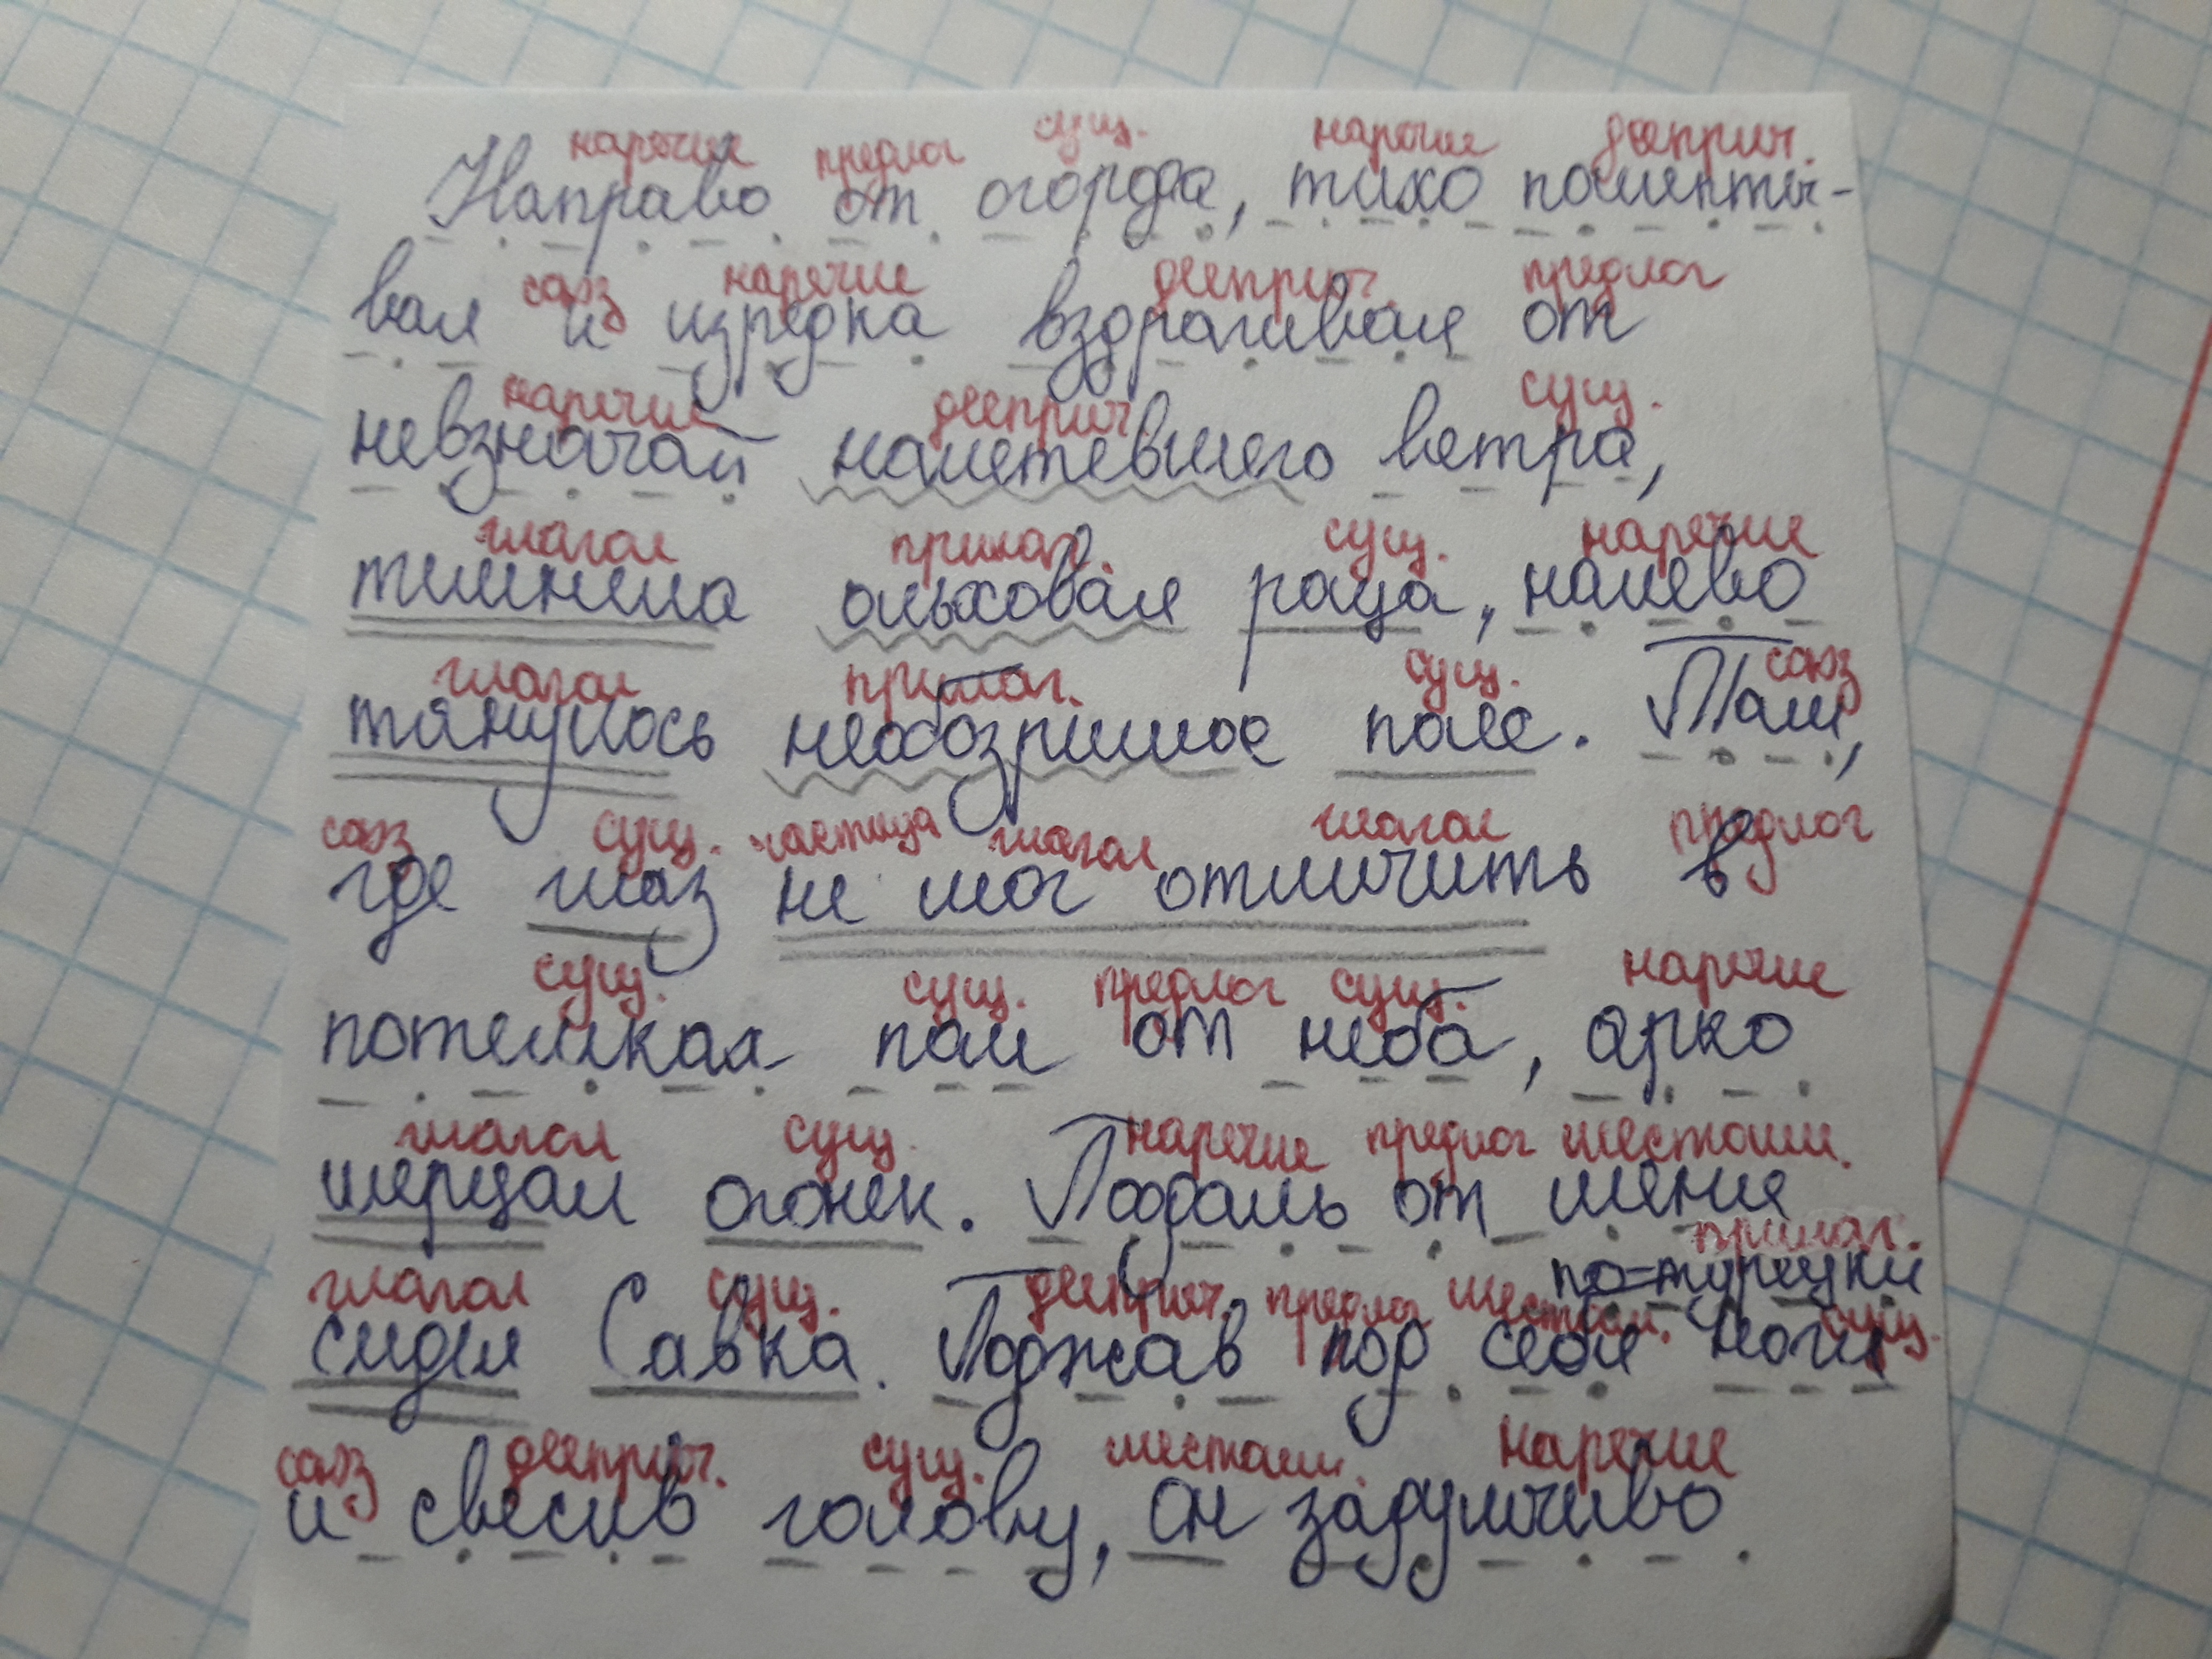 наречие предлог сущ. наречие дееприч.
Направо от огорода, тихо пошепты-
союз наречие дееприч. предлог
вая и изредка вздрагивая от
наречие дееприч. сущ.
невзначай налетевшего ветра,
глагол прилаг. сущ. наречие
темнела ольховая роща, налево
глагол прилаг. сущ. союз
тянулось необозримое поле. Там,
союз сущ. частица глагол глагол предлог
где глаз не мог отличить в
сущ. сущ. предлог сущ. наречие
потемках поле от неба, ярко
глагол сущ. наречие предлог местоим.
мерцал огонек. Поодаль от меня
прилаг.
по-турецки
глагол сущ. дееприч. предлог местоим. сущ.
сидел Савка. Поджав под себя ноги
союз дееприч. сущ. местоим. наречие
и свесив голову, он задумчиво